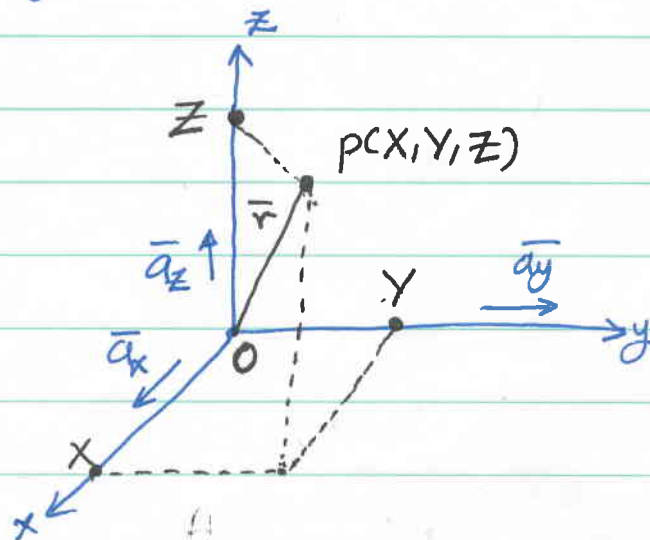 z
Z
p(X,Y,Z)
r̅
a̅z
a̅y
Y
a̅x
O
y
X
x